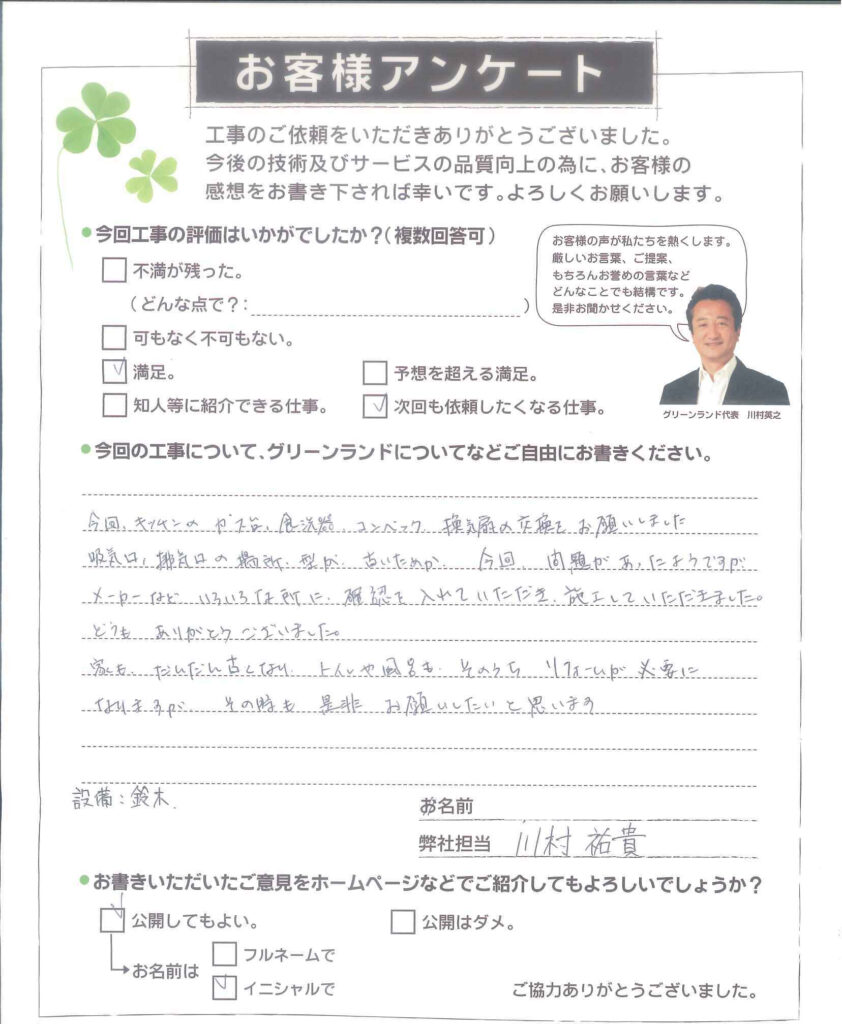 お客様アンケート
工事のご依頼をいただきありがとうございました。
今後の技術及びサービスの品質向上の為に、お客様の
感想をお書き下されば幸いです。よろしくお願いします。
今回工事の評価はいかがでしたか?(複数回答可)
お客様の声が私たちを熱くします。
厳しいお言葉、ご提案、
もちろんお誉めの言葉など
どんなことでも結構です。
是非お聞かせください。
不満が残った。
(どんな点で?: )
可もなく不可もない。
満足。 予想を超える満足。
知人等に紹介できる仕事。 次回も依頼したくなる仕事。
グリーンランド代表 川村英之
今回の工事について、グリーンランドについてなどご自由にお書きください。
今回、キッチンの ガス台、食洗器、コンベック、換気扇の交換を お願いしました
吸気口、排気口の場所、型が、古いためか、今回、問題があったようですが
メーカーなど いろいろな所に、確認を入れていただき、施工していただきました。
どうも ありがとうございました。
家も、だんだん古くなり、トイレや風呂も、そのうち リフォームが 必要に
なりますが その時も 是非 お願いしたいと思います
設備:鈴木
お名前
弊社担当 川村 祐貴
お書きいただいたご意見をホームページなどでご紹介してもよろしいでしょうか?
公開してもよい。 公開はダメ。
お名前は フルネームで
イニシャルで
ご協力ありがとうございました。